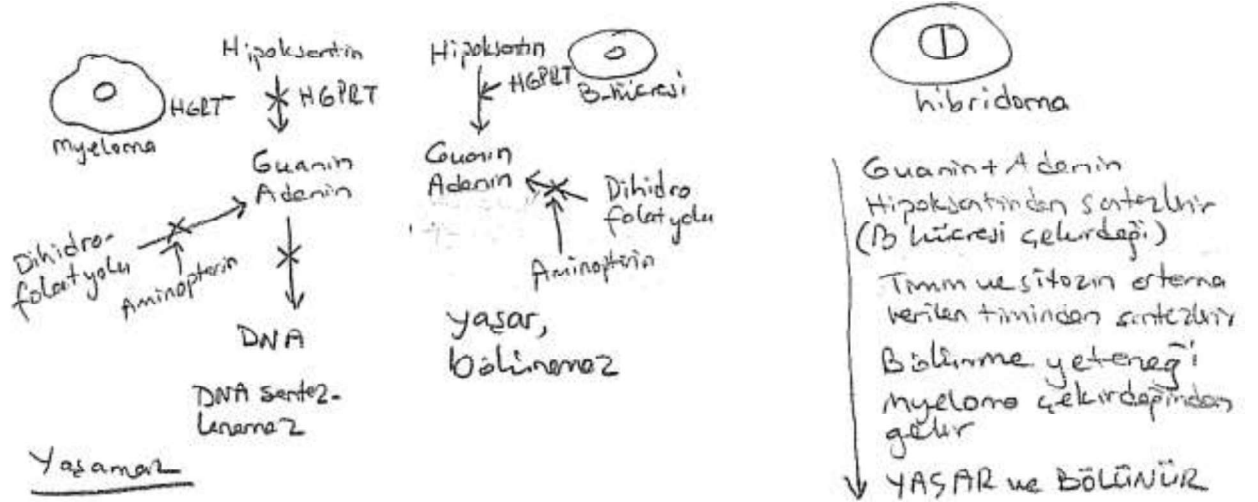 Hipoksantin
HGPRT
HGRT⁻
Myeloma
Guanin
Adenin
Dihidro-
folat yolu
Aminopterin
DNA
DNA sentez-
lenemez
Yaşamaz
Hipoksantin
HGPRT
B-hücresi
Guanin
Adenin
Dihidro
folat yolu
Aminopterin
yaşar,
bölünemez
hibridoma
Guanin+Adenin
Hipoksantinden sentezlenir
(B hücresi çekirdeği)
Timin ve sitozin ortama
verilen timinden sentezlenir
Bölünme yeteneği
myeloma çekirdeğinden
gelir
YAŞAR ve BÖLÜNÜR